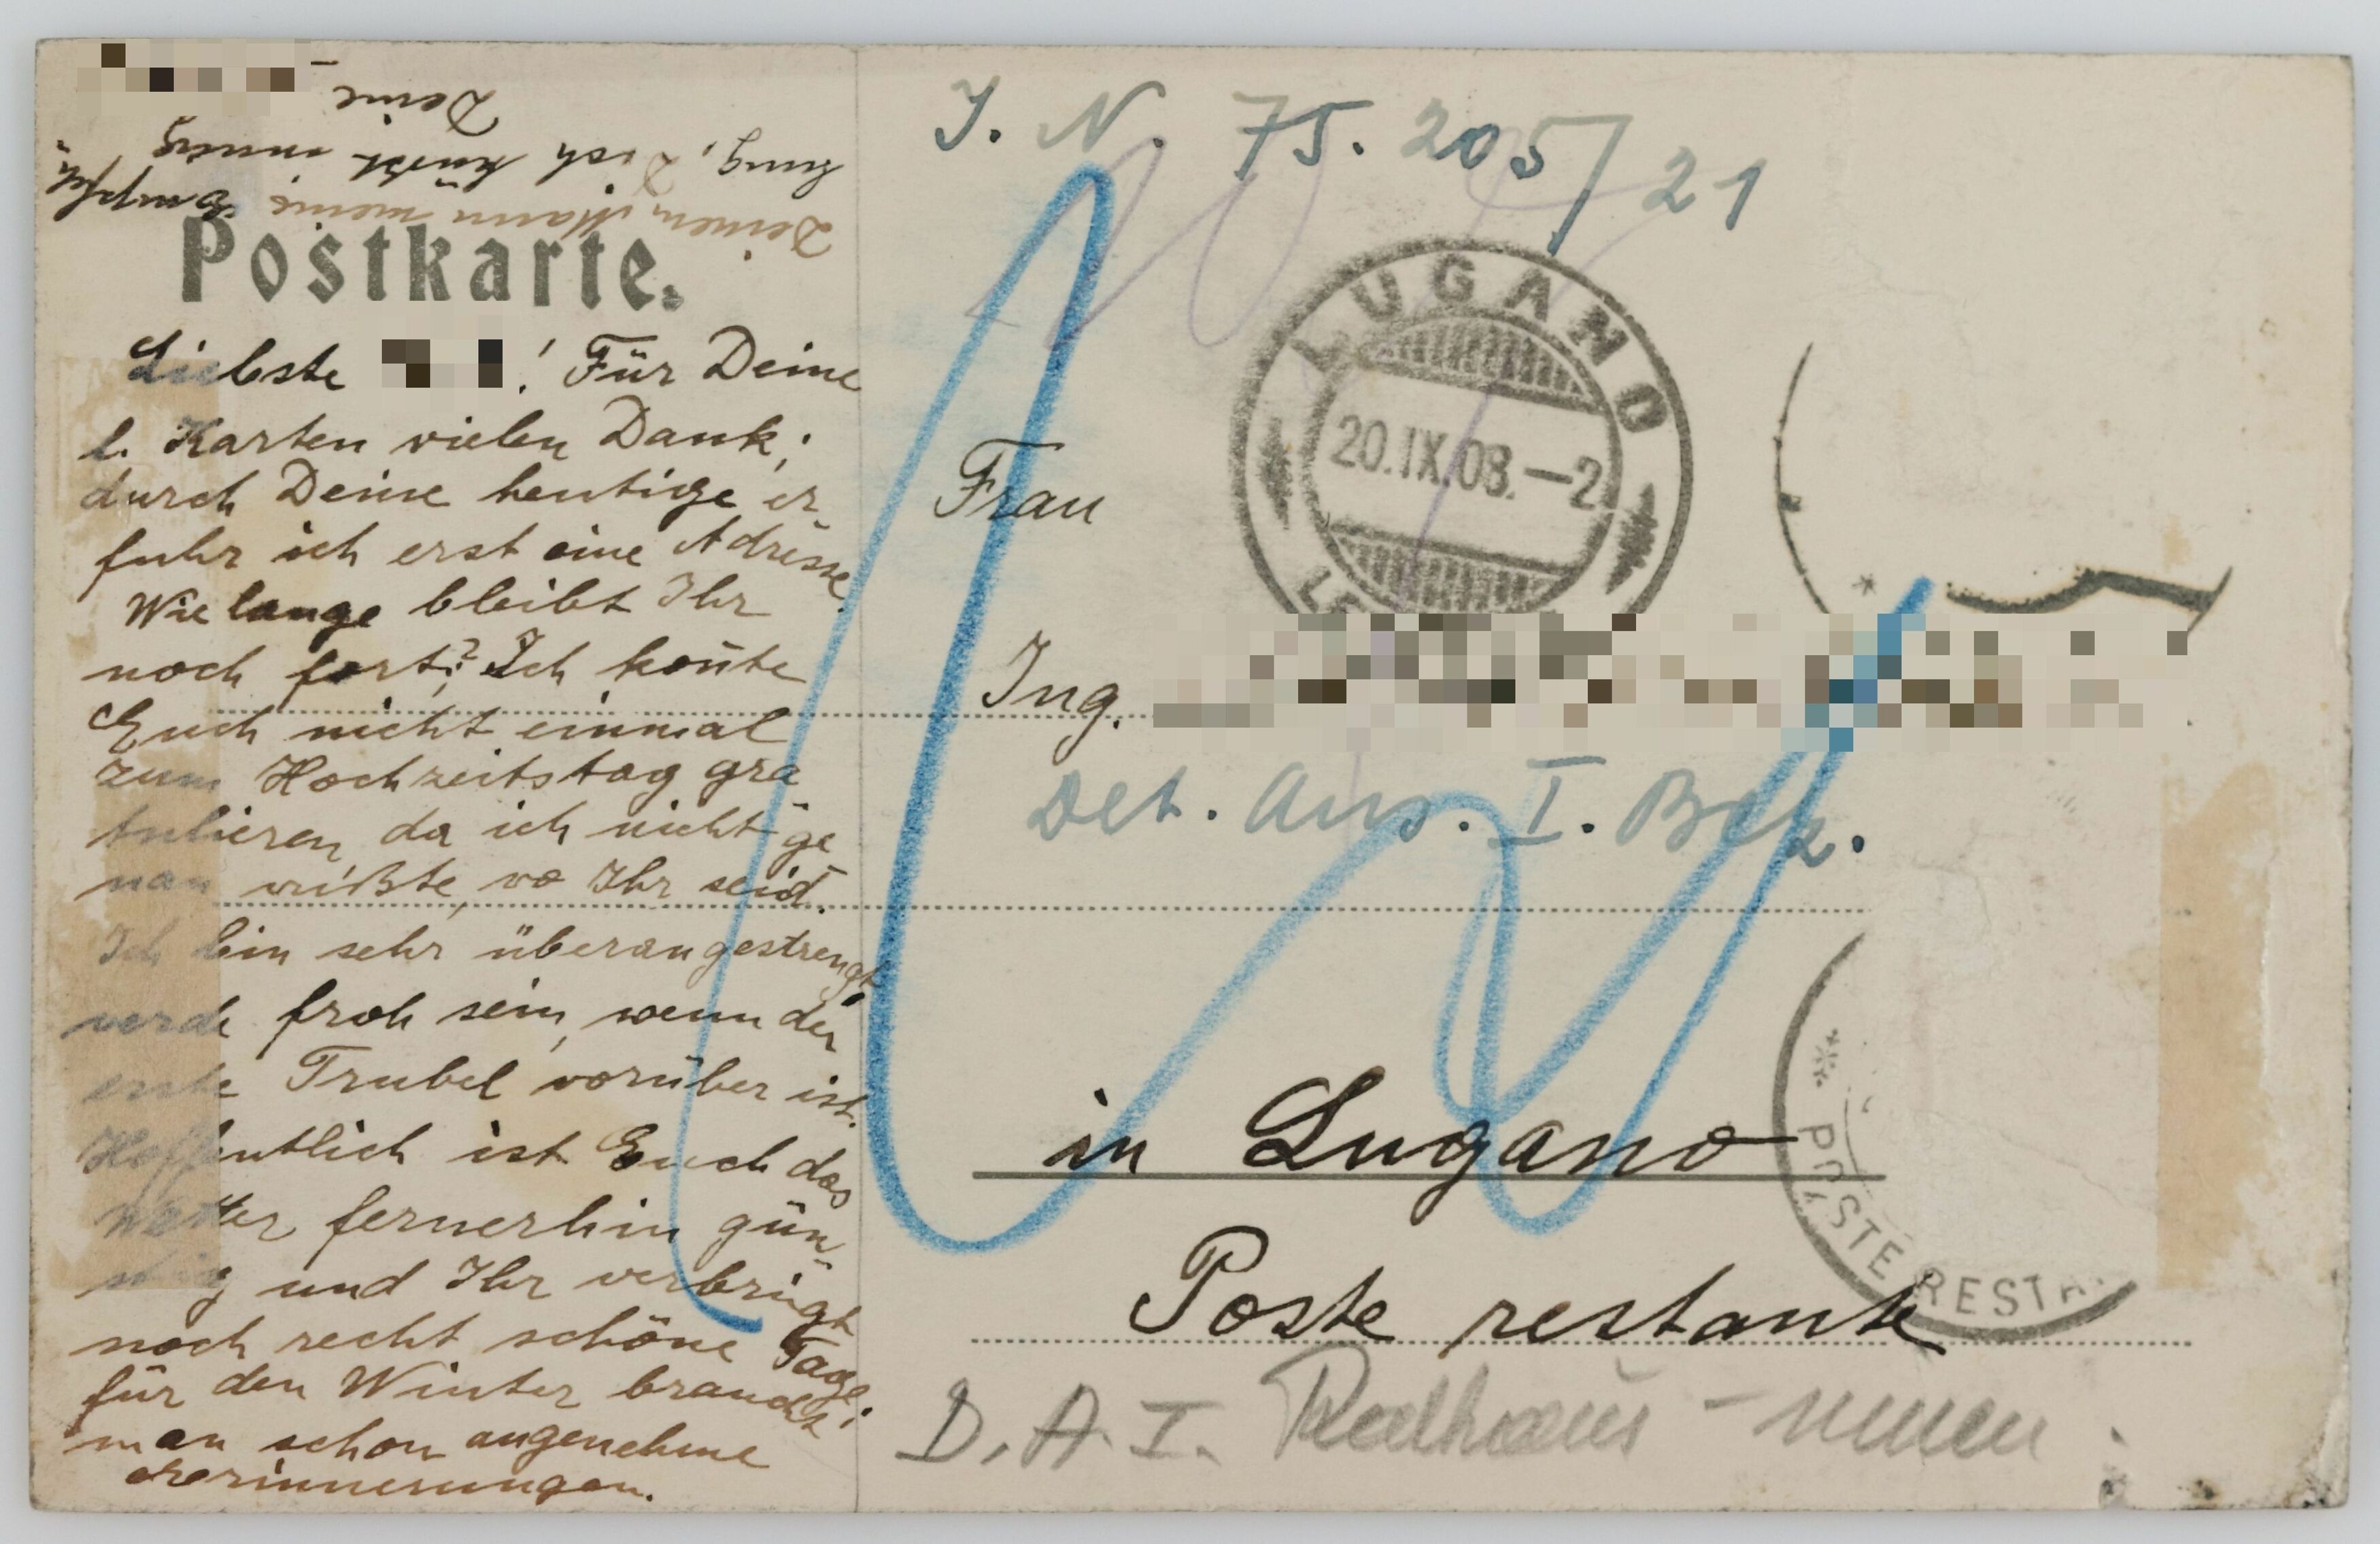 Postkarte.
Liebste ! Für Deine
l. Karten vielen Dank;
durch Deine heutige er
fuhr ich erst eine Adresse.
Wie lange bleibt Ihr
noch fort? Ich koñte
Euch nicht einmal
zum Hochzeitstag gra
tulieren, da ich nicht ge
nau wußte, wo Ihr seid.
Ich bin sehr überangestrengt
werde froh sein, wenn der
erste Trubel vorüber ist.
Hoffentlich ist Euch das
Wetter fernerhin gün-
stig und Ihr verbringt
noch recht schöne Tage;
für den Winter braucht
man schon angenehme
Erinnerungen.
Deinem Mann meine Empfeh
lung, Dich küsst innig
Deine
J. N. 75.205/21
LUGANO
20.IX.08.—2
Frau
Ing.
in Lugano
Poste restante
POSTE RESTA
D. A. I.